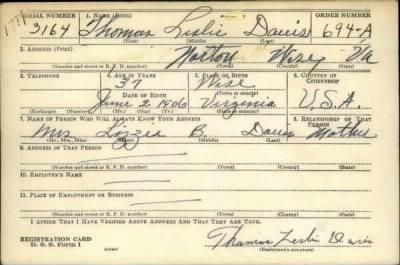 SERIAL NUMBER 1. NAME (Print) ORDER NUMBER
3164 Thomas Leslie Davis 694-A
(First) (Middle) (Last)
2. ADDRESS (Print)
Norton Wise Va
(Number and street or R. F. D. number) (Town) (County) (State)
3. TELEPHONE 4. AGE IN YEARS 5. PLACE OF BIRTH 6. COUNTRY OF CITIZENSHIP
37 Wise
DATE OF BIRTH (Town or county)
June 2 1906 Virginia U.S.A.
(Exchange) (Number) (Mo.) (Day) (Yr.) (State or country)
7. NAME OF PERSON WHO WILL ALWAYS KNOW YOUR ADDRESS 8. RELATIONSHIP OF THAT PERSON
Mrs Lizzie B. Davis Mother
(Mr., Mrs., Miss) (First) (Middle) (Last)
9. ADDRESS OF THAT PERSON
(Number and street or R. F. D. number) (Town) (County) (State)
10. EMPLOYER'S NAME
11. PLACE OF EMPLOYMENT OR BUSINESS
(Number and street or R. F. D. number) (Town) (County) (State)
I AFFIRM THAT I HAVE VERIFIED ABOVE ANSWERS AND THAT THEY ARE TRUE.
REGISTRATION CARD
D. S. S. FORM 1 Thomas Leslie Davis
(over) (Registrant's signature)